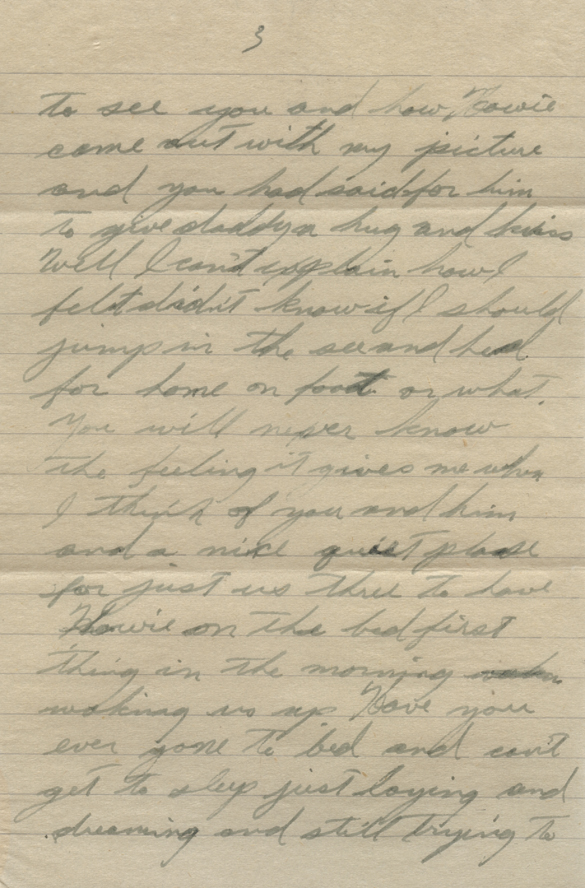 3
to see you and how Howie
come out with my picture
and you had said for him
to give daddy a hug and kiss
Well I can't explain how I
felt didn't know if I should
jump in the sea and head
for home on foot or what.
You will never know
the feeling it gives me when
I think of you and him
and a nice quiet place
for just us three to have
Howie on the bed first
thing in the morning
waking us up Have you
ever gone to bed and can't
get to sleep just laying and
dreaming and still trying to